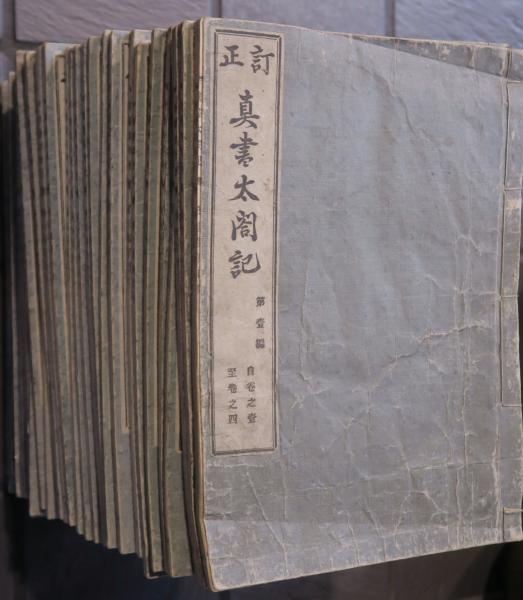 訂正
真書太閤記
第壹編
自卷之壹
至卷之四